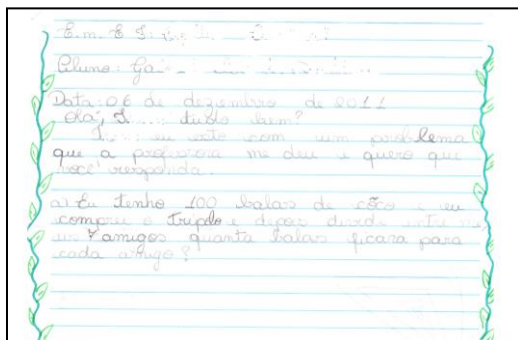 E. m. E
Aluno: Ga
Data: 06 de dezembro de 2011
Olá, I..... tudo bem?
I..... eu exto com um problema
que a professora me deu e quero que
você responda.
a) Eu tenho 100 balas de côco e eu
comprei o triplo e depos divide entre meus
7 amigos quanta balas ficara para
cada amigo?